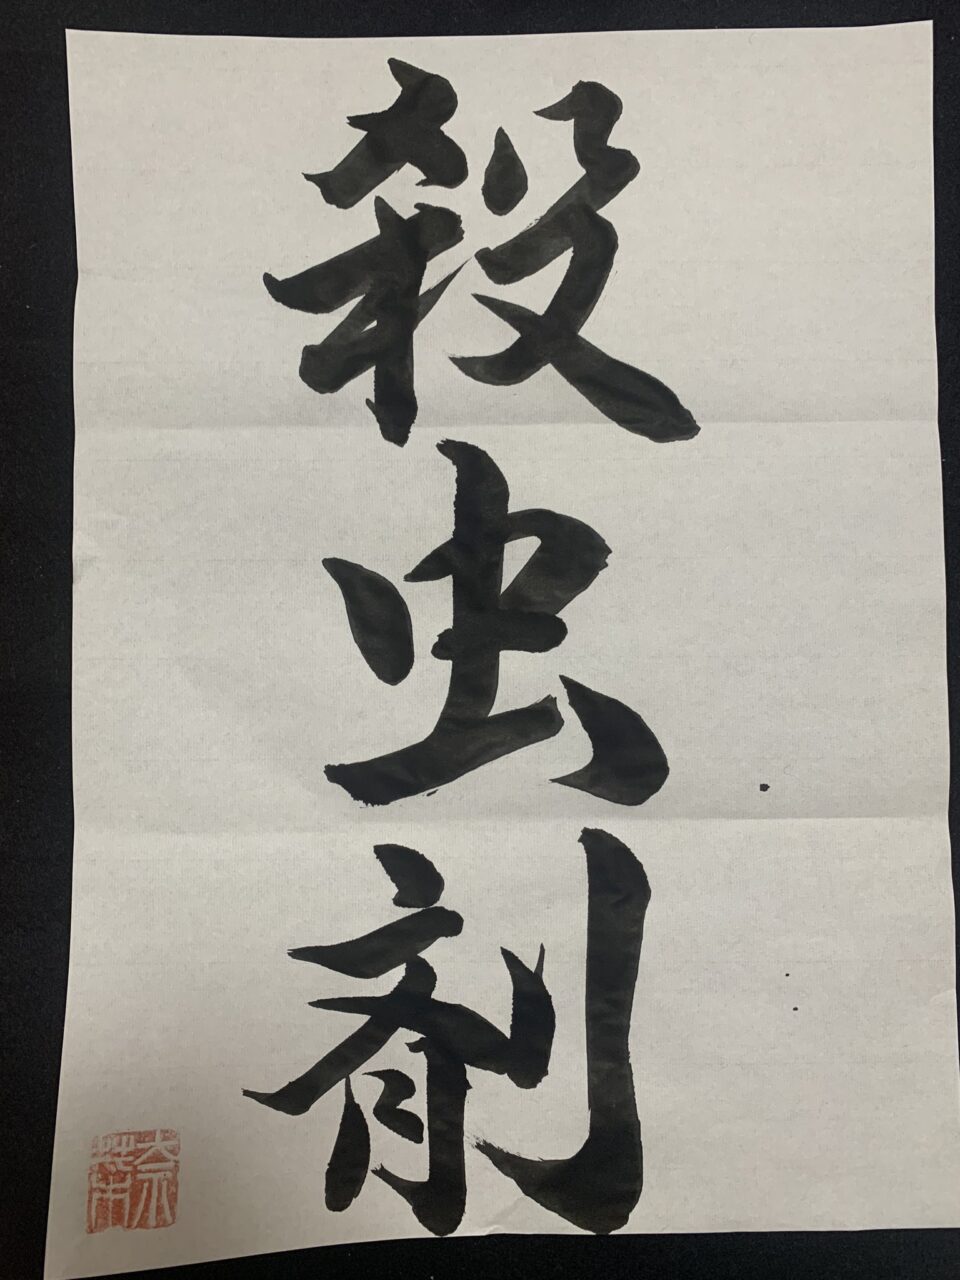 殺虫剤